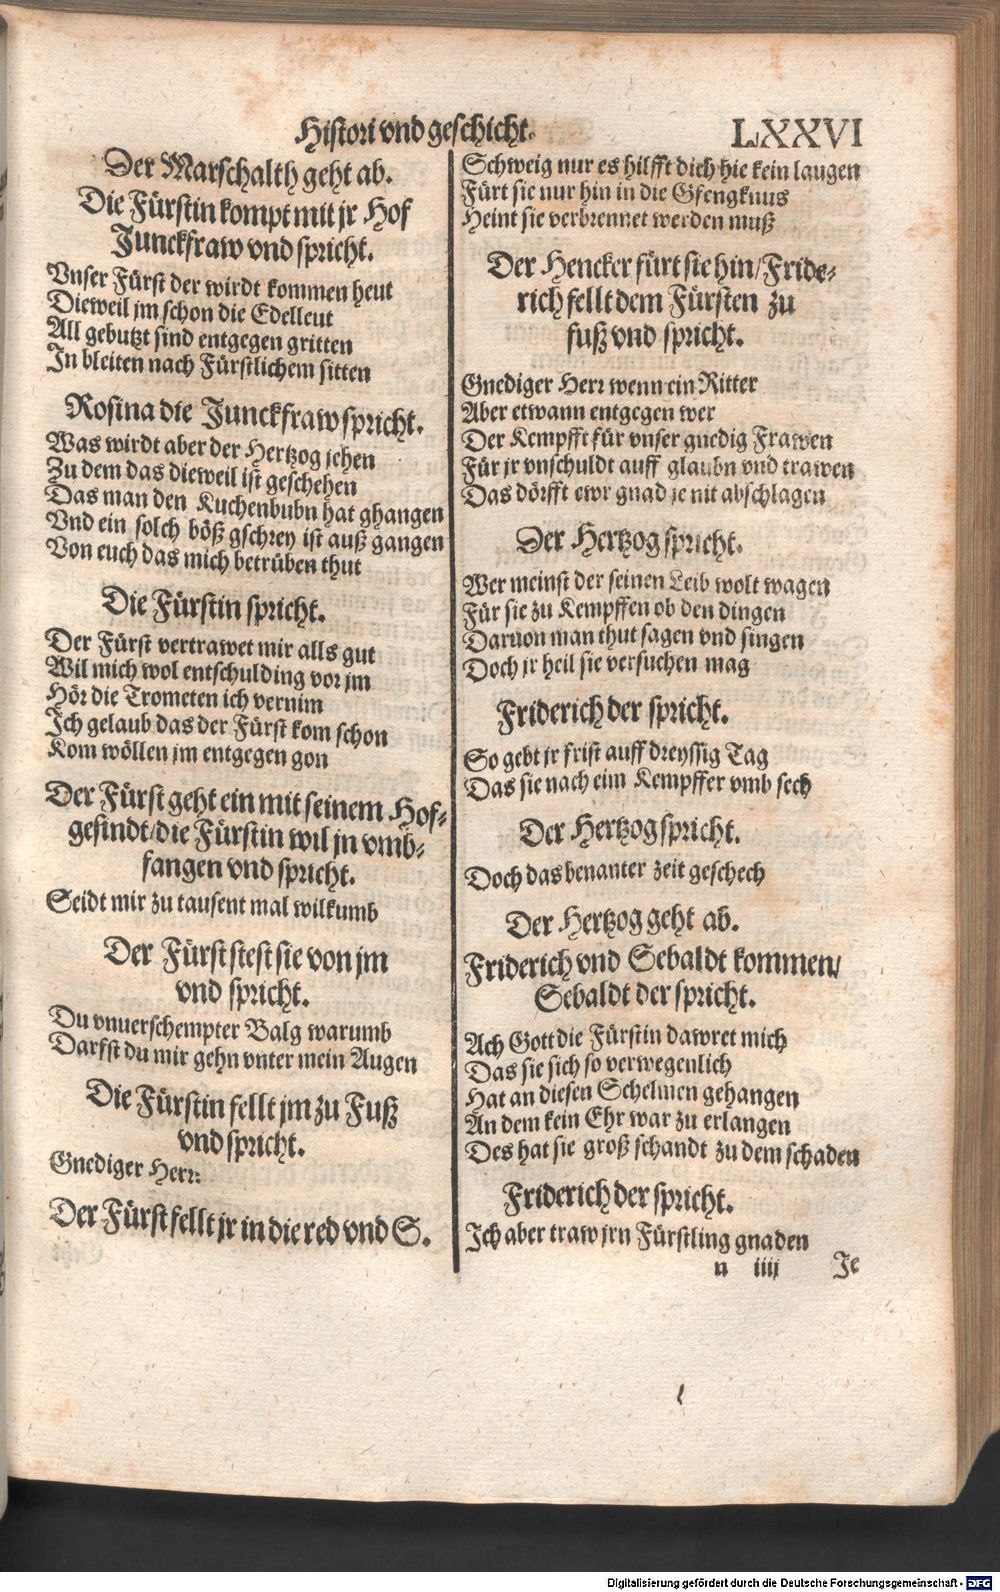 Histori vnd geschicht.
LXXVI
Der Marschalth geht ab.
Die Fürstin kompt mit jr Hof
Junckfraw vnd spricht.
Vnser Fürst der wirdt kommen heut
Dieweil jm schon die Edelleut
All gebutzt sind entgegen gritten
In bleiten nach Fürstlichem sitten
Rosina die Junckfraw spricht.
Was wirdt aber der Hertzog jehen
Zu dem das dieweil ist geschehen
Das man den Kuchenbubn hat ghangen
Vnd ein solch böß gschrey ist auß gangen
Von euch das mich betrüben thut
Die Fürstin spricht.
Der Fürst vertrawet mir alls gut
Wil mich wol entschulding vor jm
Hör die Trometen ich vernim
Ich gelaub das der Fürst kom schon
Kom wöllen jm entgegen gon
Der Fürst geht ein mit seinem Hof-
gesindt/die Fürstin wil jn vmb-
fangen vnd spricht.
Seidt mir zu tausent mal wilkumb
Der Fürst stest sie von jm
vnd spricht.
Du vnuerschempter Balg warumb
Darfst du mir gehn vnter mein Augen
Die Fürstin fellt jm zu Fuß
vnd spricht.
Gnediger Herr:
Der Fürst fellt jr in die red vnd S.
Schweig nur es hilfft dich hie kein laugen
Fürt sie nur hin in die Gfengknus
Heint sie verbrennet werden muß
Der Hencker fürt sie hin/Fride-
rich fellt dem Fürsten zu
fuß vnd spricht.
Gnediger Herr wenn ein Ritter
Aber etwann entgegen wer
Der Kempfft für vnser gnedig Frawen
Für jr vnschuldt auff glaubn vnd trawen
Das dörfft ewr gnad je nit abschlagen
Der Hertzog spricht.
Wer meinst der seinen Leib wolt wagen
Für sie zu Kempffen ob den dingen
Daruon man thut sagen vnd singen
Doch jr heil sie versuchen mag
Friderich der spricht.
So gebt jr frist auff dreyssig Tag
Das sie nach eim Kempffer vmb sech
Der Hertzog spricht.
Doch das benanter zeit geschech
Der Hertzog geht ab.
Friderich vnd Sebaldt kommen/
Sebaldt der spricht.
Ach Gott die Fürstin dawret mich
Das sie sich so verwegenlich
Hat an diesen Schelmen gehangen
An dem kein Ehr war zu erlangen
Des hat sie groß schandt zu dem schaden
Friderich der spricht.
Ich aber traw jrn Fürstling gnaden
n iiij
Je
Digitalisierung gefördert durch die Deutsche Forschungsgemeinschaft - DFG